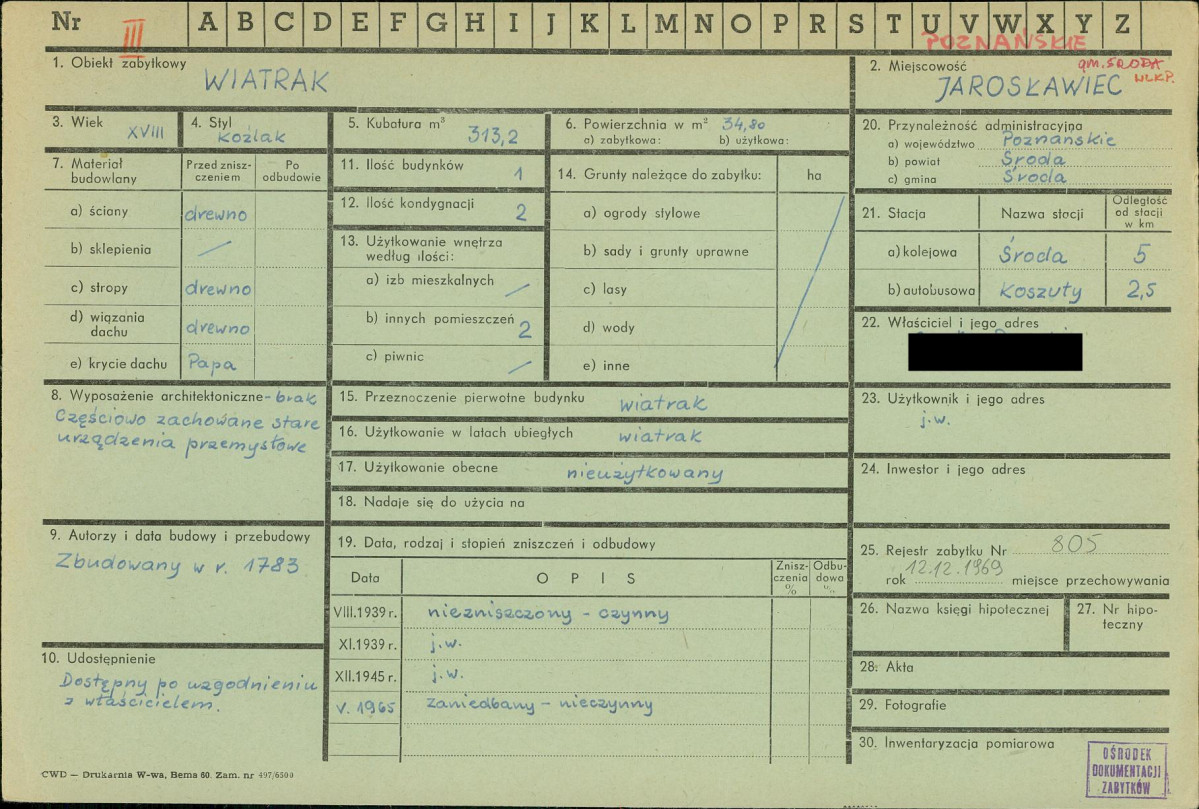 Nr III A B C D E F G H I J K L M N O P R S T U V W X Y Z
POZNAŃSKIE
1. Obiekt zabytkowy
WIATRAK
2. Miejscowość
gm. ŚRODA
WLKP.
JAROSŁAWIEC
3. Wiek
XVIII
4. Styl
koźlak
5. Kubatura m³
313,2
6. Powierzchnia w m² 34,80
a) zabytkowa: b) użytkowa:
20. Przynależność administracyjna
a) województwo Poznańskie
b) powiat Środa
c) gmina Środa
7. Materiał budowlany
Przed zniszczeniem
Po odbudowie
a) ściany drewno
b) sklepienia —
c) stropy drewno
d) wiązania dachu drewno
e) krycie dachu Papa
11. Ilość budynków 1
12. Ilość kondygnacji 2
13. Użytkowanie wnętrza
według ilości:
a) izb mieszkalnych —
b) innych pomieszczeń 2
c) piwnic —
14. Grunty należące do zabytku: ha
a) ogrody stylowe
b) sady i grunty uprawne
c) lasy
d) wody
e) inne
21. Stacja Nazwa stacji Odległość od stacji w km
a) kolejowa Środa 5
b) autobusowa Koszuty 2,5
22. Właściciel i jego adres
8. Wyposażenie architektoniczne - brak
Częściowo zachowane stare
urządzenia przemysłowe
15. Przeznoczenie pierwotne budynku wiatrak
16. Użytkowanie w latach ubiegłych wiatrak
17. Użytkowanie obecne nieużytkowany
18. Nadaje się do użycia na
23. Użytkownik i jego adres
j.w.
24. Inwestor i jego adres
9. Autorzy i data budowy i przebudowy
Zbudowany w r. 1783
19. Data, rodzaj i stopień zniszczeń i odbudowy
Data OPIS Zniszczenia % Odbudowa %
VIII.1939 r. niezniszczony - czynny
XI.1939 r. j.w.
XII.1945 r. j.w.
V. 1965 zaniedbany - nieczynny
10. Udostępnienie
Dostępny po uzgodnieniu
z właścicielem.
25. Rejestr zabytku Nr 805
rok 12.12.1969 miejsce przechowywania
26. Nazwa księgi hipotecznej
27. Nr hipoteczny
28. Akta
29. Fotografie
30. Inwentaryzacja pomiarowa
OŚRODEK
DOKUMENTACJI
ZABYTKÓW
CWD — Drukarnia W-wa, Bema 60. Zam. nr 497/6500